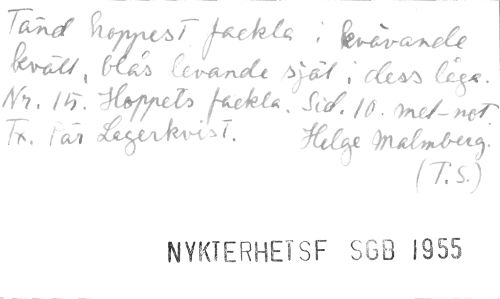 Tänd hoppest fackla i kvävande
kväll, blås levande själ i dess låga.
Nr. 15. Hoppets fackla. Sid. 10. mel-not
Tx. Pär Lagerkvist. Helge Malmberg.
(T.S.)
NYKTERHETSF SGB 1955